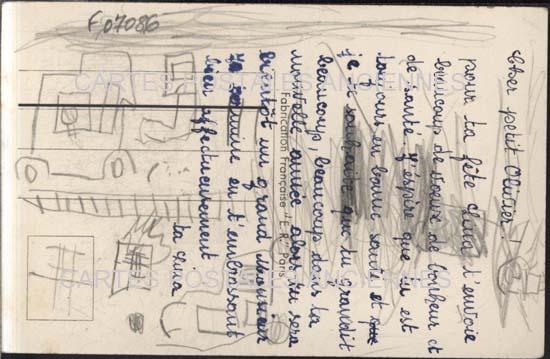 F07086
Cher petit Olivier!
pour ta fête Clara t'envoie
beaucoup de vœux de bonheur et
de santé. J'espère que tu est
toujours en bonne santé et
je te souhaite que tu grandit
beaucoup, beaucoup dans la
nouvelle année alors tu sera
bientôt un grand monsieur
Je termine en t'embrassant
bien affectueusement
ta
Fabrication Française "E.R." Paris
CARTES POSTALES ANCIENNES
CARTES POSTALES ANCIENNES